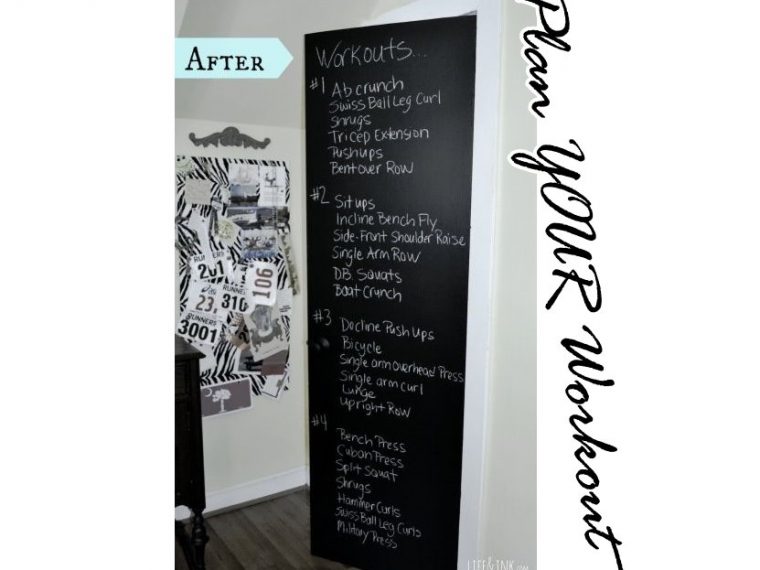 AFTER
Workouts...
#1 Ab crunch
Swiss Ball Leg Curl
Shrugs
Tricep Extension
Pushups
Bent over Row
#2 Sit ups
Incline Bench Fly
Side-Front Shoulder Raise
Single Arm Row
D.B. Squats
Boat Crunch
#3 Decline Push Ups
Bicycle
Single arm overhead Press
Single arm curl
Lunge
Upright Row
#4
Bench Press
Cuban Press
Split Squat
Shrugs
Hammer Curls
Swiss Ball Leg Curls
Military Press
RUNNERS
201
23
310
106
RUNNERS
3001
LIFE&INK.com
Plan YOUR Workout